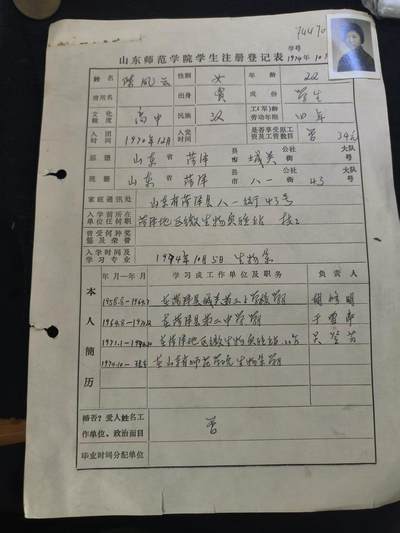 74470
山东师范学院学生注册登记表
学号
1974年10月
姓名 陈凤云 性别 女 年龄 22
曾用名 出身 贫 成份 学生
文化程度 高中 民族 汉 工(军)龄劳动年限 四年
入团时间 1970年12月 入党时间 是否享受原工资及工资数目 否 34元
原籍 山东省 菏泽县市 城关街 大队号
现籍 山东省 菏泽县市 八一街 43 大队号
家庭通讯处 山东省菏泽县八一街43号
入学前所在单位任何职 菏泽地区微生物实验站
曾受何种奖惩及荣誉
入学时间及学习专业 1974年10月5日 生物系
本人简历
年月—年月 学习或工作单位及职务 负责人
在菏泽县城关第二小学校学习
在菏泽县第二中学学习
在菏泽地区微生物实验站
1974.10-现在 在山东师范学院生物系学习
婚否?爱人姓名工作单位、政治面目 否
毕业时间分配单位